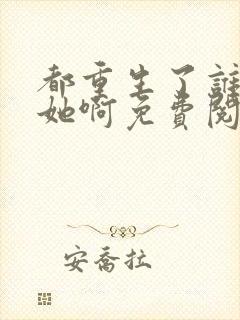 都重生了誰
她啊免費閱
安喬拉